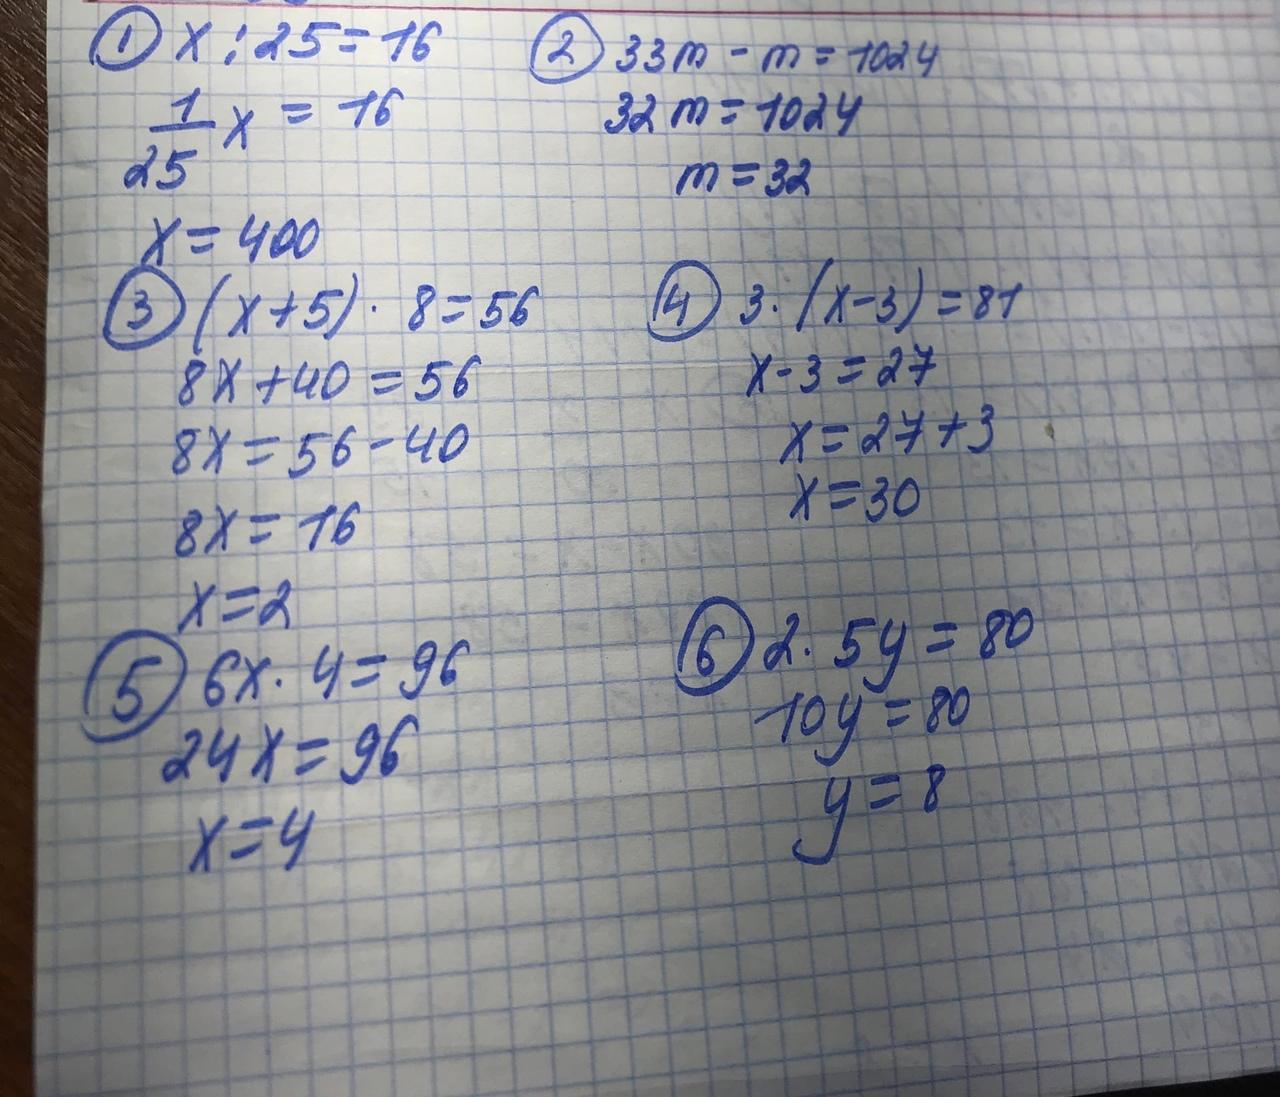 ① x : 25 = 16
1/25 x = 16
x = 400
② 33m - m = 1024
32m = 1024
m = 32
③ (x + 5) · 8 = 56
8x + 40 = 56
8x = 56 - 40
8x = 16
x = 2
④ 3 · (x - 3) = 81
x - 3 = 27
x = 27 + 3
x = 30
⑤ 6x · 4 = 96
24x = 96
x = 4
⑥ 2 · 5y = 80
10y = 80
y = 8